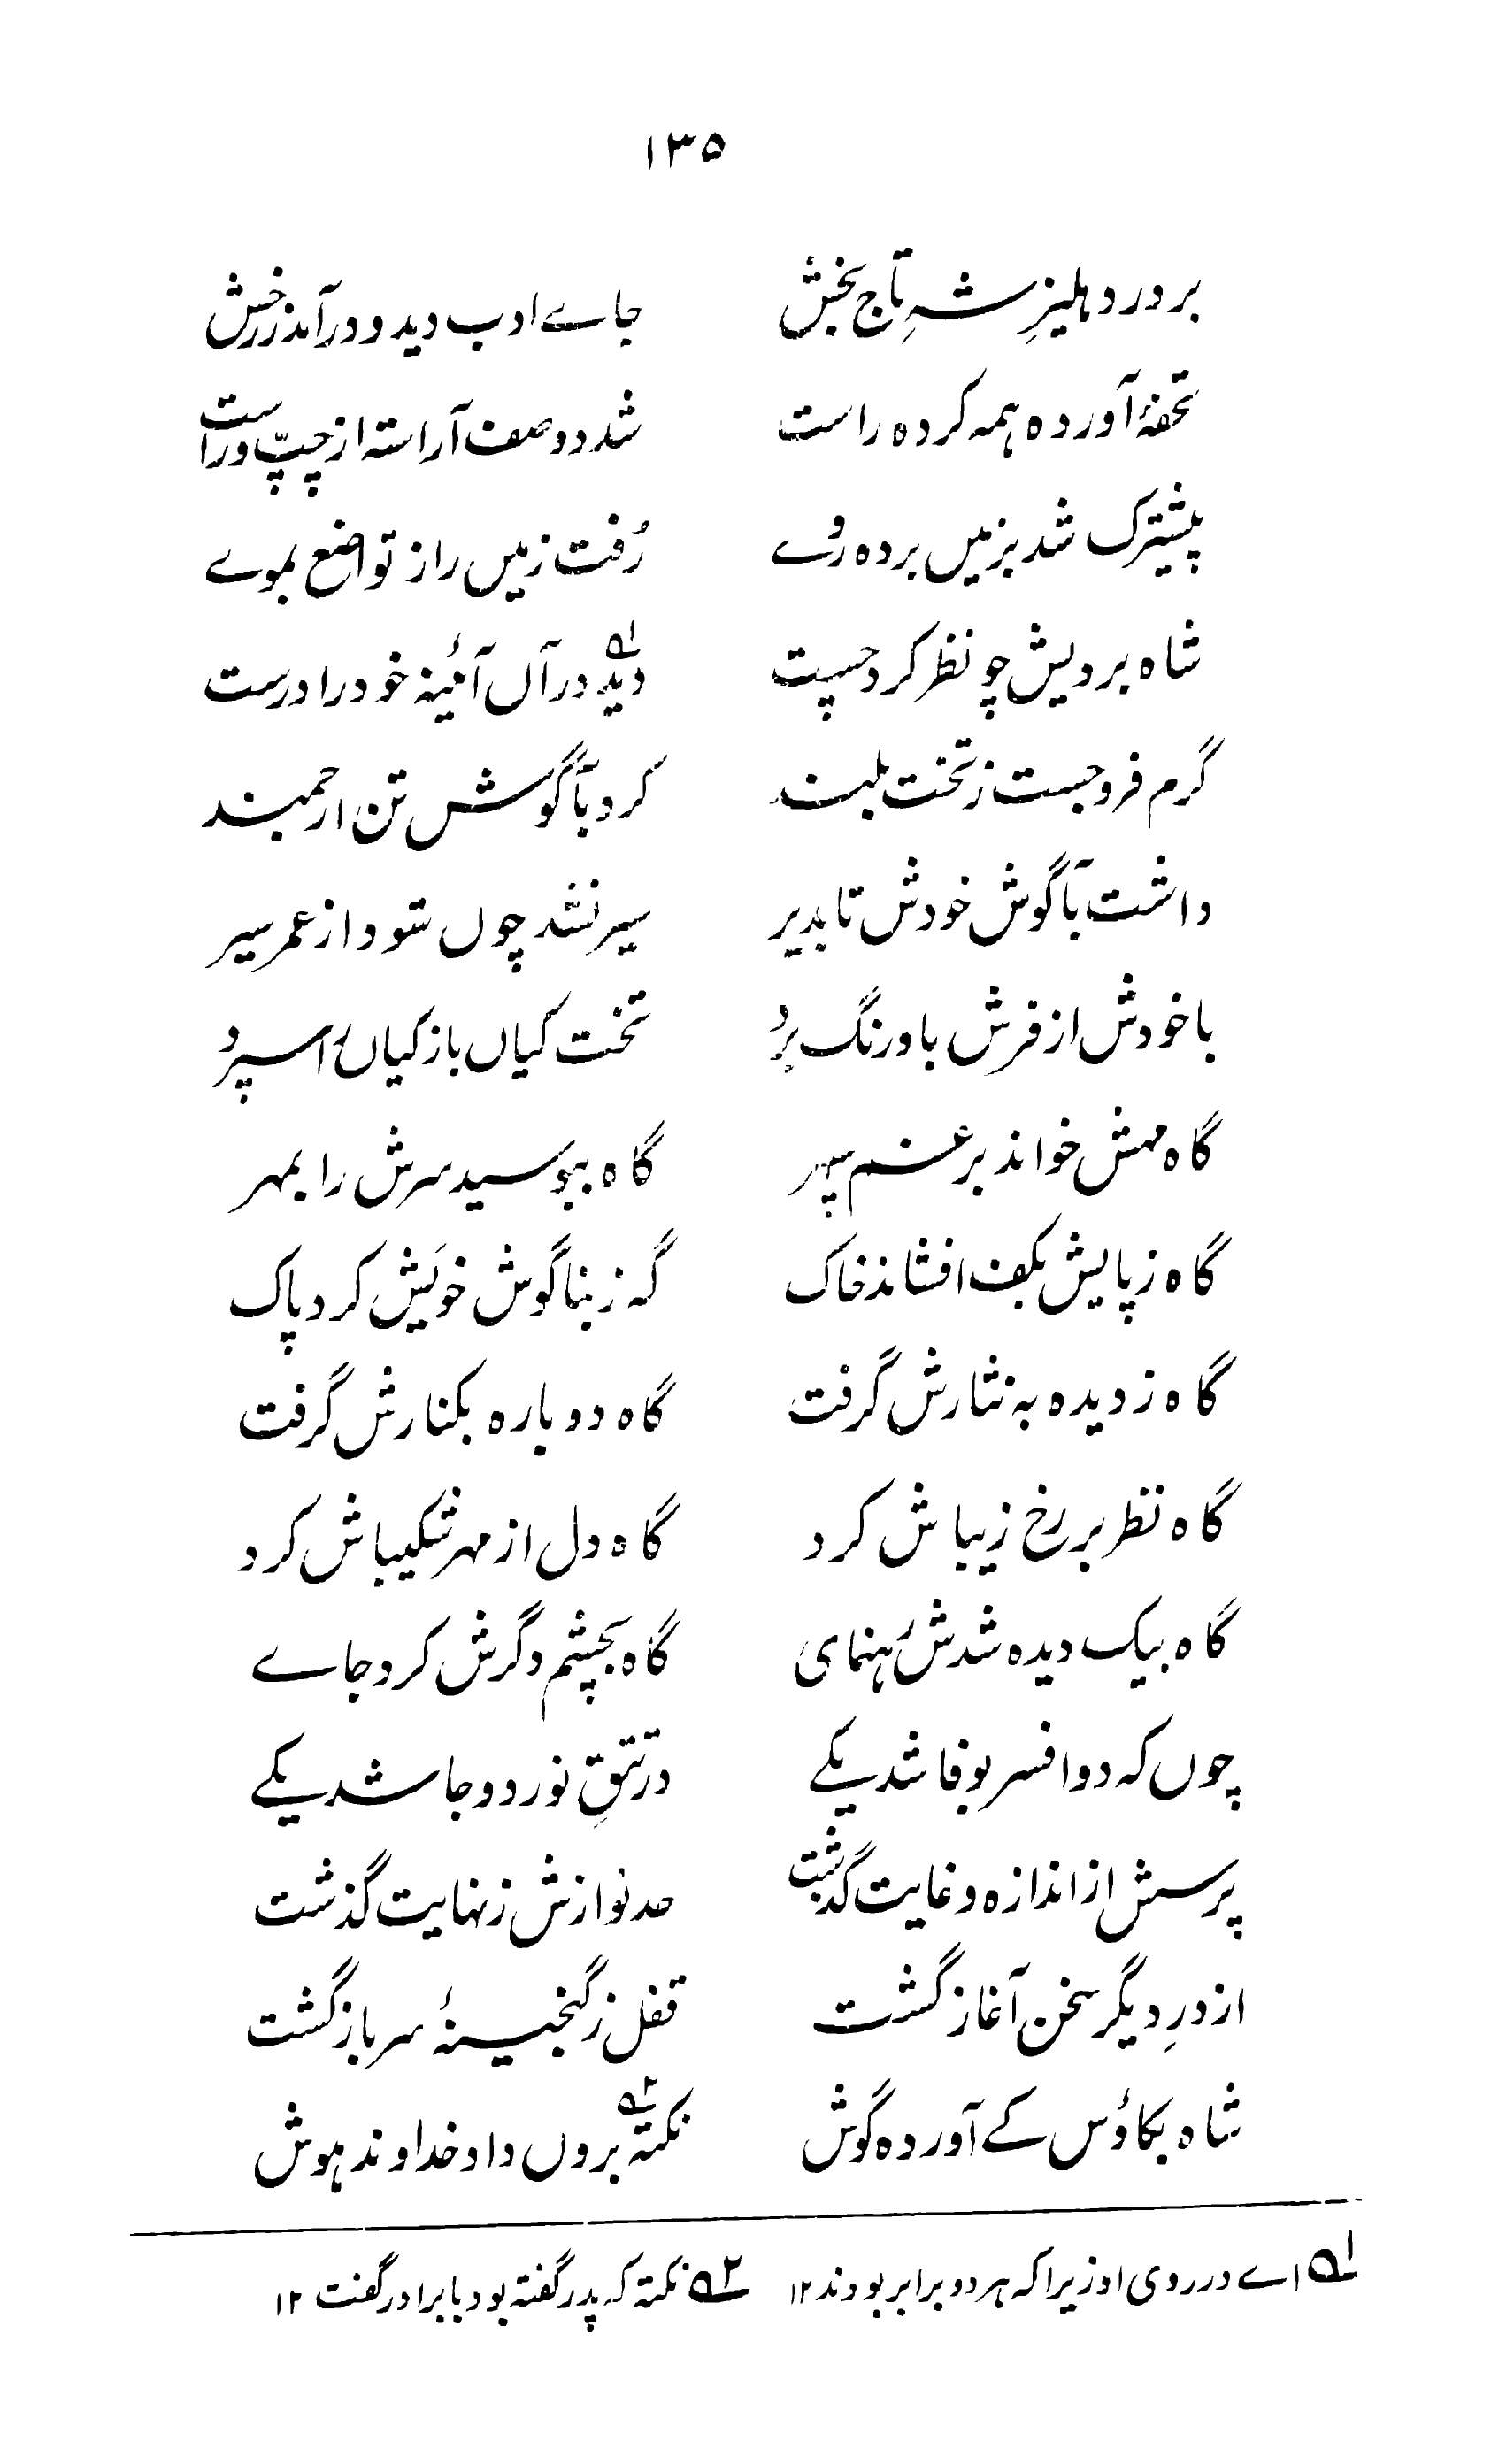 ۱۳۵
بر در دہلیزِ شہِ تاج بخش جاے ادب دید و در آمد ز رخش
تحفۂ آوردہ ہمہ کردہ راست شد دو صف آراستہ از چپّ و راست
پیشترک شد بزمیں بردہ رُوے رُفت زمیں را ز تواضع بموے
شاہ برویش چو نظر کرد چست دید۱؎ در آں آئینہ خود را درست
گرم فرو جست ز تخت بلند کرد بآگوش تن ارجمند
داشت بآگوش خودش تا بدیر سیر نشد چوں شود از عمر سیر
با خودش از فرش باورنگ بُرد تخت کیاں باز کیاں را سپرد
گاہ مہش خواند بر غم سپہر گاہ ببوسید سرش را بمہر
گاہ ز پایش بکف افشاند خاک گہ ز بناگوش خویَش کرد پاک
گاہ ز دیدہ بہ نثارش گرفت گاہ دوبارہ بکنارش گرفت
گاہ نظر بر رخ زیباش کرد گاہ دل از مہر شکیباش کرد
گاہ بیک دیدہ شدش رَہنمای گاہ بچشم دگرش کرد جاے
چوں کہ دو افسر بوفا شد یکے در تتقِ نور دو جا شد یکے
پرسش از اندازہ و غایت گذشت حد نوازش ز نہایت گذشت
از درِ دیگر سخن آغاز گشت قفل ز گنجینۂ سر باز گشت
شاہ بکاؤس کے آوردہ گوش نکتہ۲؎ بروں داد خداوند ہوش
۱؎ اے در روی او زیرا کہ ہر دو برابر بودند ۱۲ ۲؎ نکتہ کہ پدر گفتہ بود با برادر گفت ۱۲